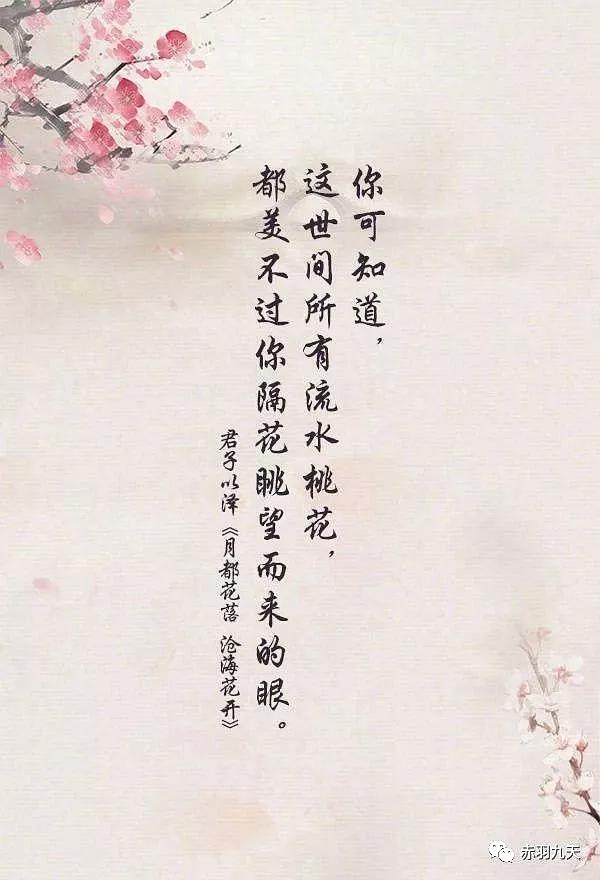 你可知道，
这世间所有流水桃花，
都美不过你隔花眺望而来的眼。
君子以泽《月都花落 沧海花开》
赤羽九天